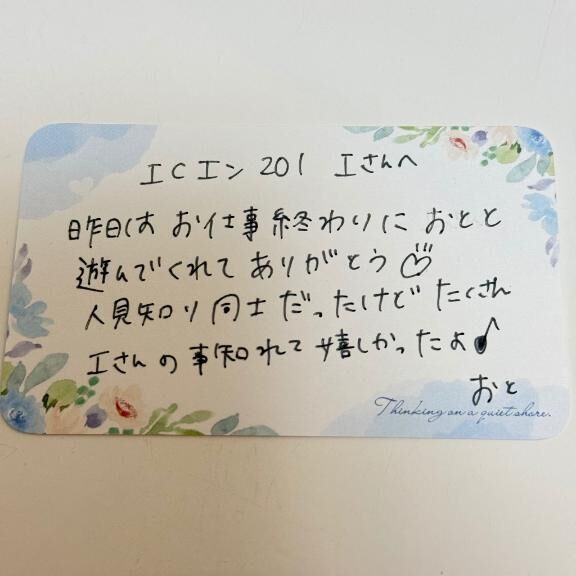 エCエン 201 Iさんへ
昨日は お仕事終わりに おとと
遊んでくれて ありがとう♡
人見知り同士だったけど たくさん
Iさんの事知れて 嬉しかったよ♪
おと
Thinking on a quiet shore.